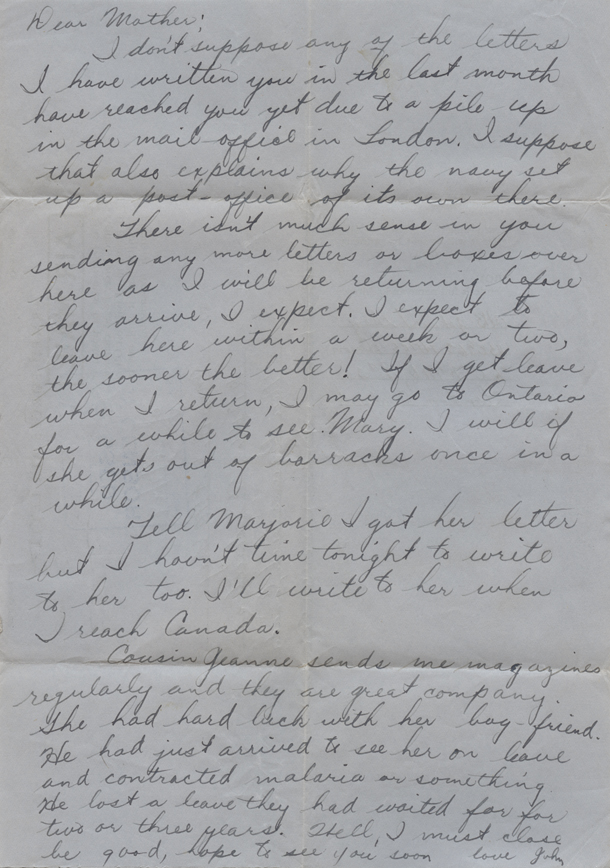 Dear Mother;
I don't suppose any of the letters
I have written you in the last month
have reached you yet due to a pile up
in the mail office in London. I suppose
that also explains why the navy set
up a post-office of its own there.
There isn't much sense in you
sending any more letters or boxes over
here as I will be returning before
they arrive, I expect. I expect to
leave here within a week or two,
the sooner the better! If I get leave
when I return, I may go to Ontario
for a while to see Mary. I will if
she gets out of barracks once in a
while.
Tell Marjorie I got her letter
but I havn't time tonight to write
to her too. I'll write to her when
I reach Canada.
Cousin Jeanne sends me magazines
regularly and they are great company.
She had hard luck with her boy-friend.
He had just arrived to see her on leave
and contracted malaria or something.
He lost a leave they had waited for for
two or three years. Well, I must close
be good, hope to see you soon love John